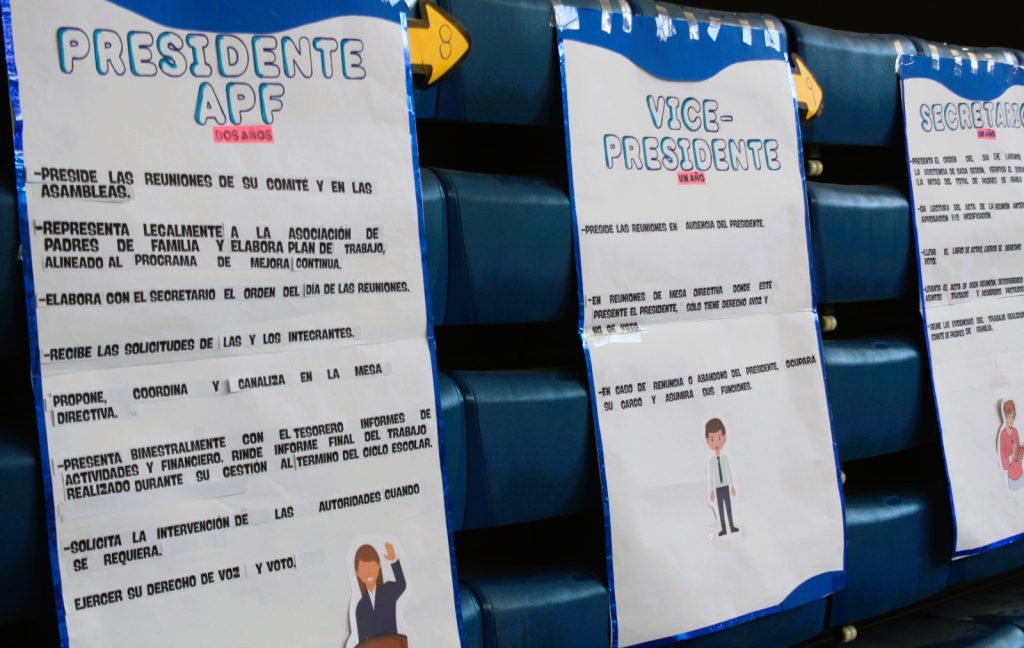 PRESIDENTE
APF
DOS AÑOS
-PRESIDE LAS REUNIONES DE SU COMITÉ Y EN LAS
ASAMBLEAS.
-REPRESENTA LEGALMENTE A LA ASOCIACIÓN DE
PADRES DE FAMILIA Y ELABORA PLAN DE TRABAJO,
ALINEADO AL PROGRAMA DE MEJORA CONTINUA.
-ELABORA CON EL SECRETARIO EL ORDEN DEL DÍA DE LAS REUNIONES.
-RECIBE LAS SOLICITUDES DE LAS Y LOS INTEGRANTES.
PROPONE, COORDINA Y CANALIZA EN LA MESA
DIRECTIVA.
-PRESENTA BIMESTRALMENTE CON EL TESORERO INFORMES DE
ACTIVIDADES Y FINANCIERO. RINDE INFORME FINAL DEL TRABAJO
REALIZADO DURANTE SU GESTIÓN AL TERMINO DEL CICLO ESCOLAR.
-SOLICITA LA INTERVENCIÓN DE LAS AUTORIDADES CUANDO
SE REQUIERA.
EJERCER SU DERECHO DE VOZ Y VOTO.
8
VICE-
PRESIDENTE
UN AÑO
-PRESIDE LAS REUNIONES EN AUSENCIA DEL PRESIDENTE.
-EN REUNIONES DE MESA DIRECTIVA DONDE ESTE
PRESENTE EL PRESIDENTE, SOLO TIENE DERECHO AVOZ Y
NO DE VOTO.
-EN CASO DE RENUNCIA O ABANDONO DEL PRESIDENTE, OCUPARA
SU CARGO Y ASUMIRA SUS FUNCIONES.
9
SECRETARIO
UN AÑO
-PRESENTA EL ORDEN DEL DÍA DE
LA ASISTENCIA DE CADA SESIÓN, VERIFICA EL
(LA MITAD DEL TOTAL DE PADRES DE
-DA LECTURA DEL ACTA DE LA REUNIÓN
APROBACIÓN Y/O MODIFICACIÓN.
-LLEVA EL LIBRO DE ACTAS, EJERCE EL DERECHO
VOTO.
-LEVANTA EL ACTA DE CADA REUNIÓN, DESCRIBIENDO
ASUNTOS TRATADO Y ACUERDOS
-REÚNE LAS EVIDENCIAS DEL TRABAJO
COMITÉ DE PADRES DE FAMILIA.